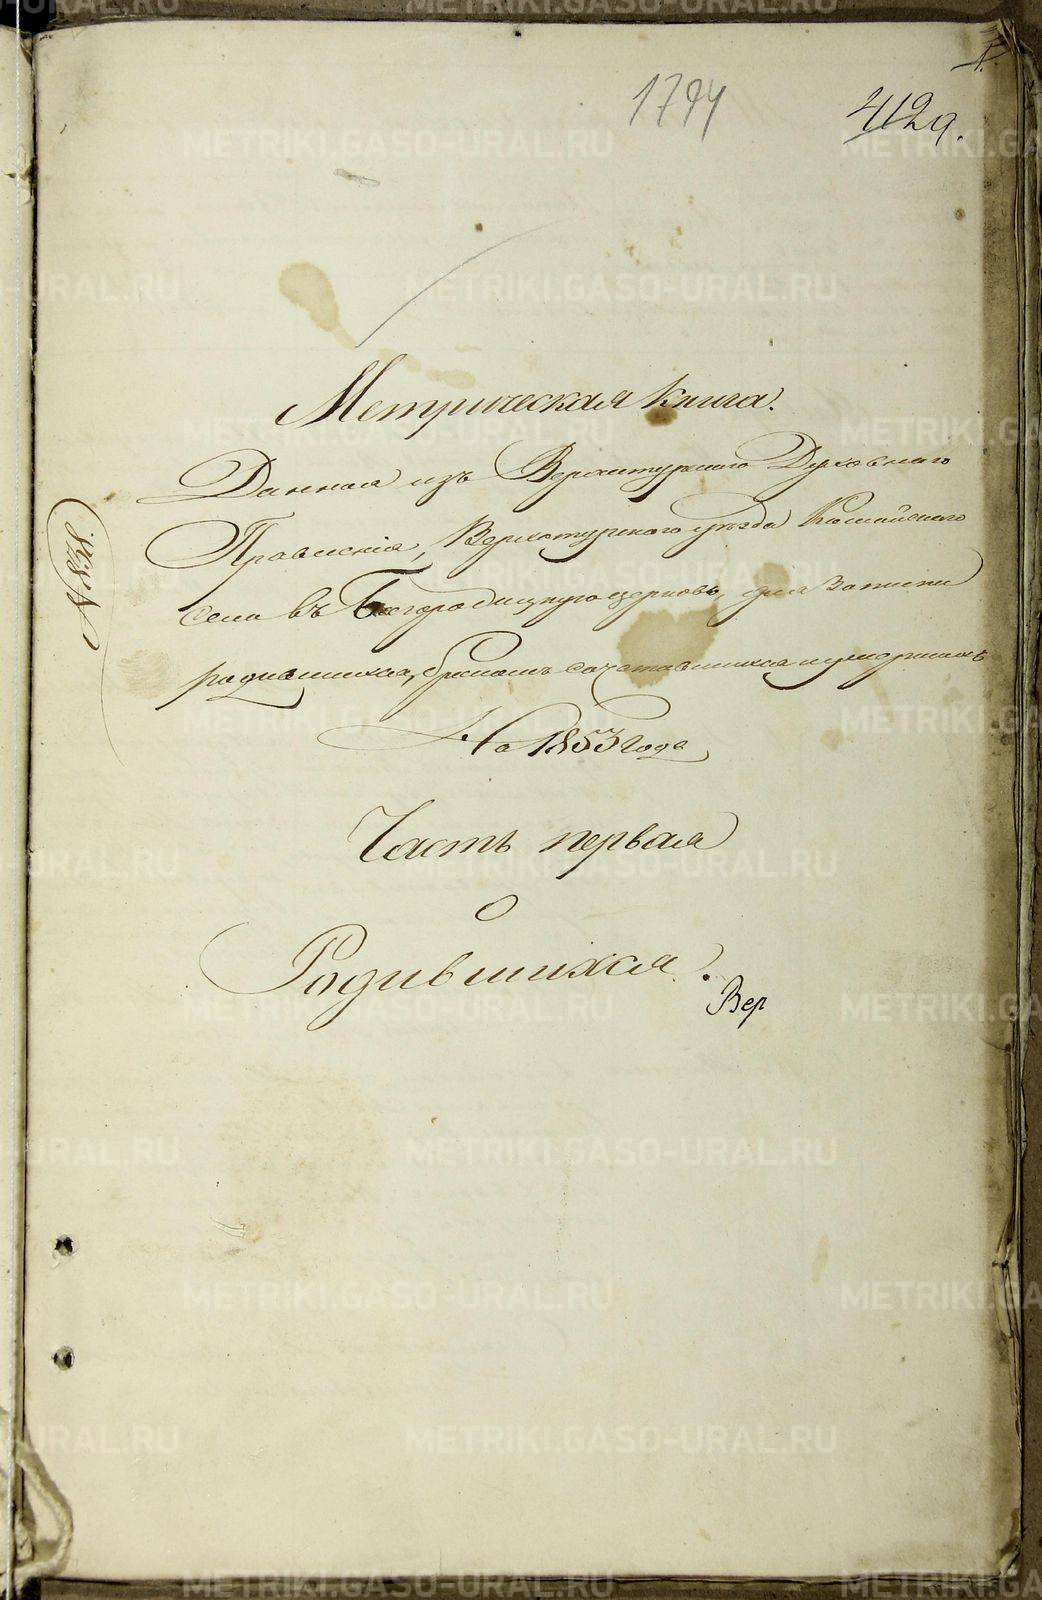 1794
4129.
1.
Метрическая книга.
Данная изъ Верхотурскаго Духовнаго
Правленія, Верхотурскаго уѣзда Кошайскаго
села въ Богородицкую церковь, для записи
родившихся, бракомъ сочетавшихся и умершихъ
На 1853 года
Часть первая
о
Родившихся.
Вер
№ 838.
METRIKI.GASO-URAL.RU